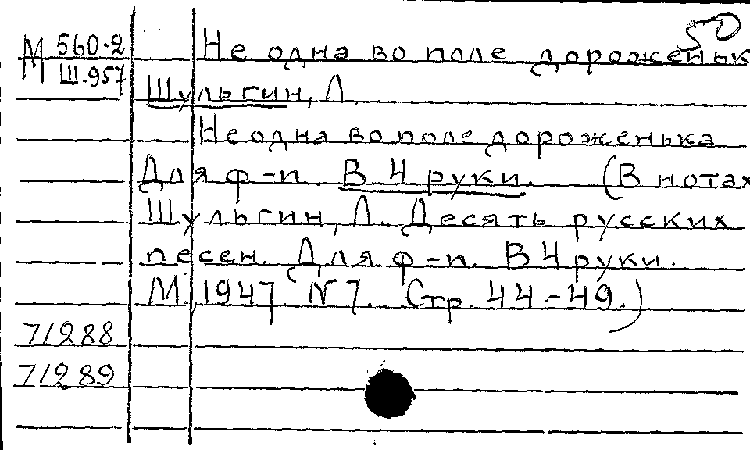 50
М 560-2 Не одна во поле дороженьк
Ш.957
Шульгин, Л.
Не одна во поле дороженька
Для ф-п. В 4 руки. (В нотах
Шульгин, Л. Десять русских
песен. Для ф-п. В 4 руки.
М. 1947. N 7. Стр. 44-49.)
71288
71289